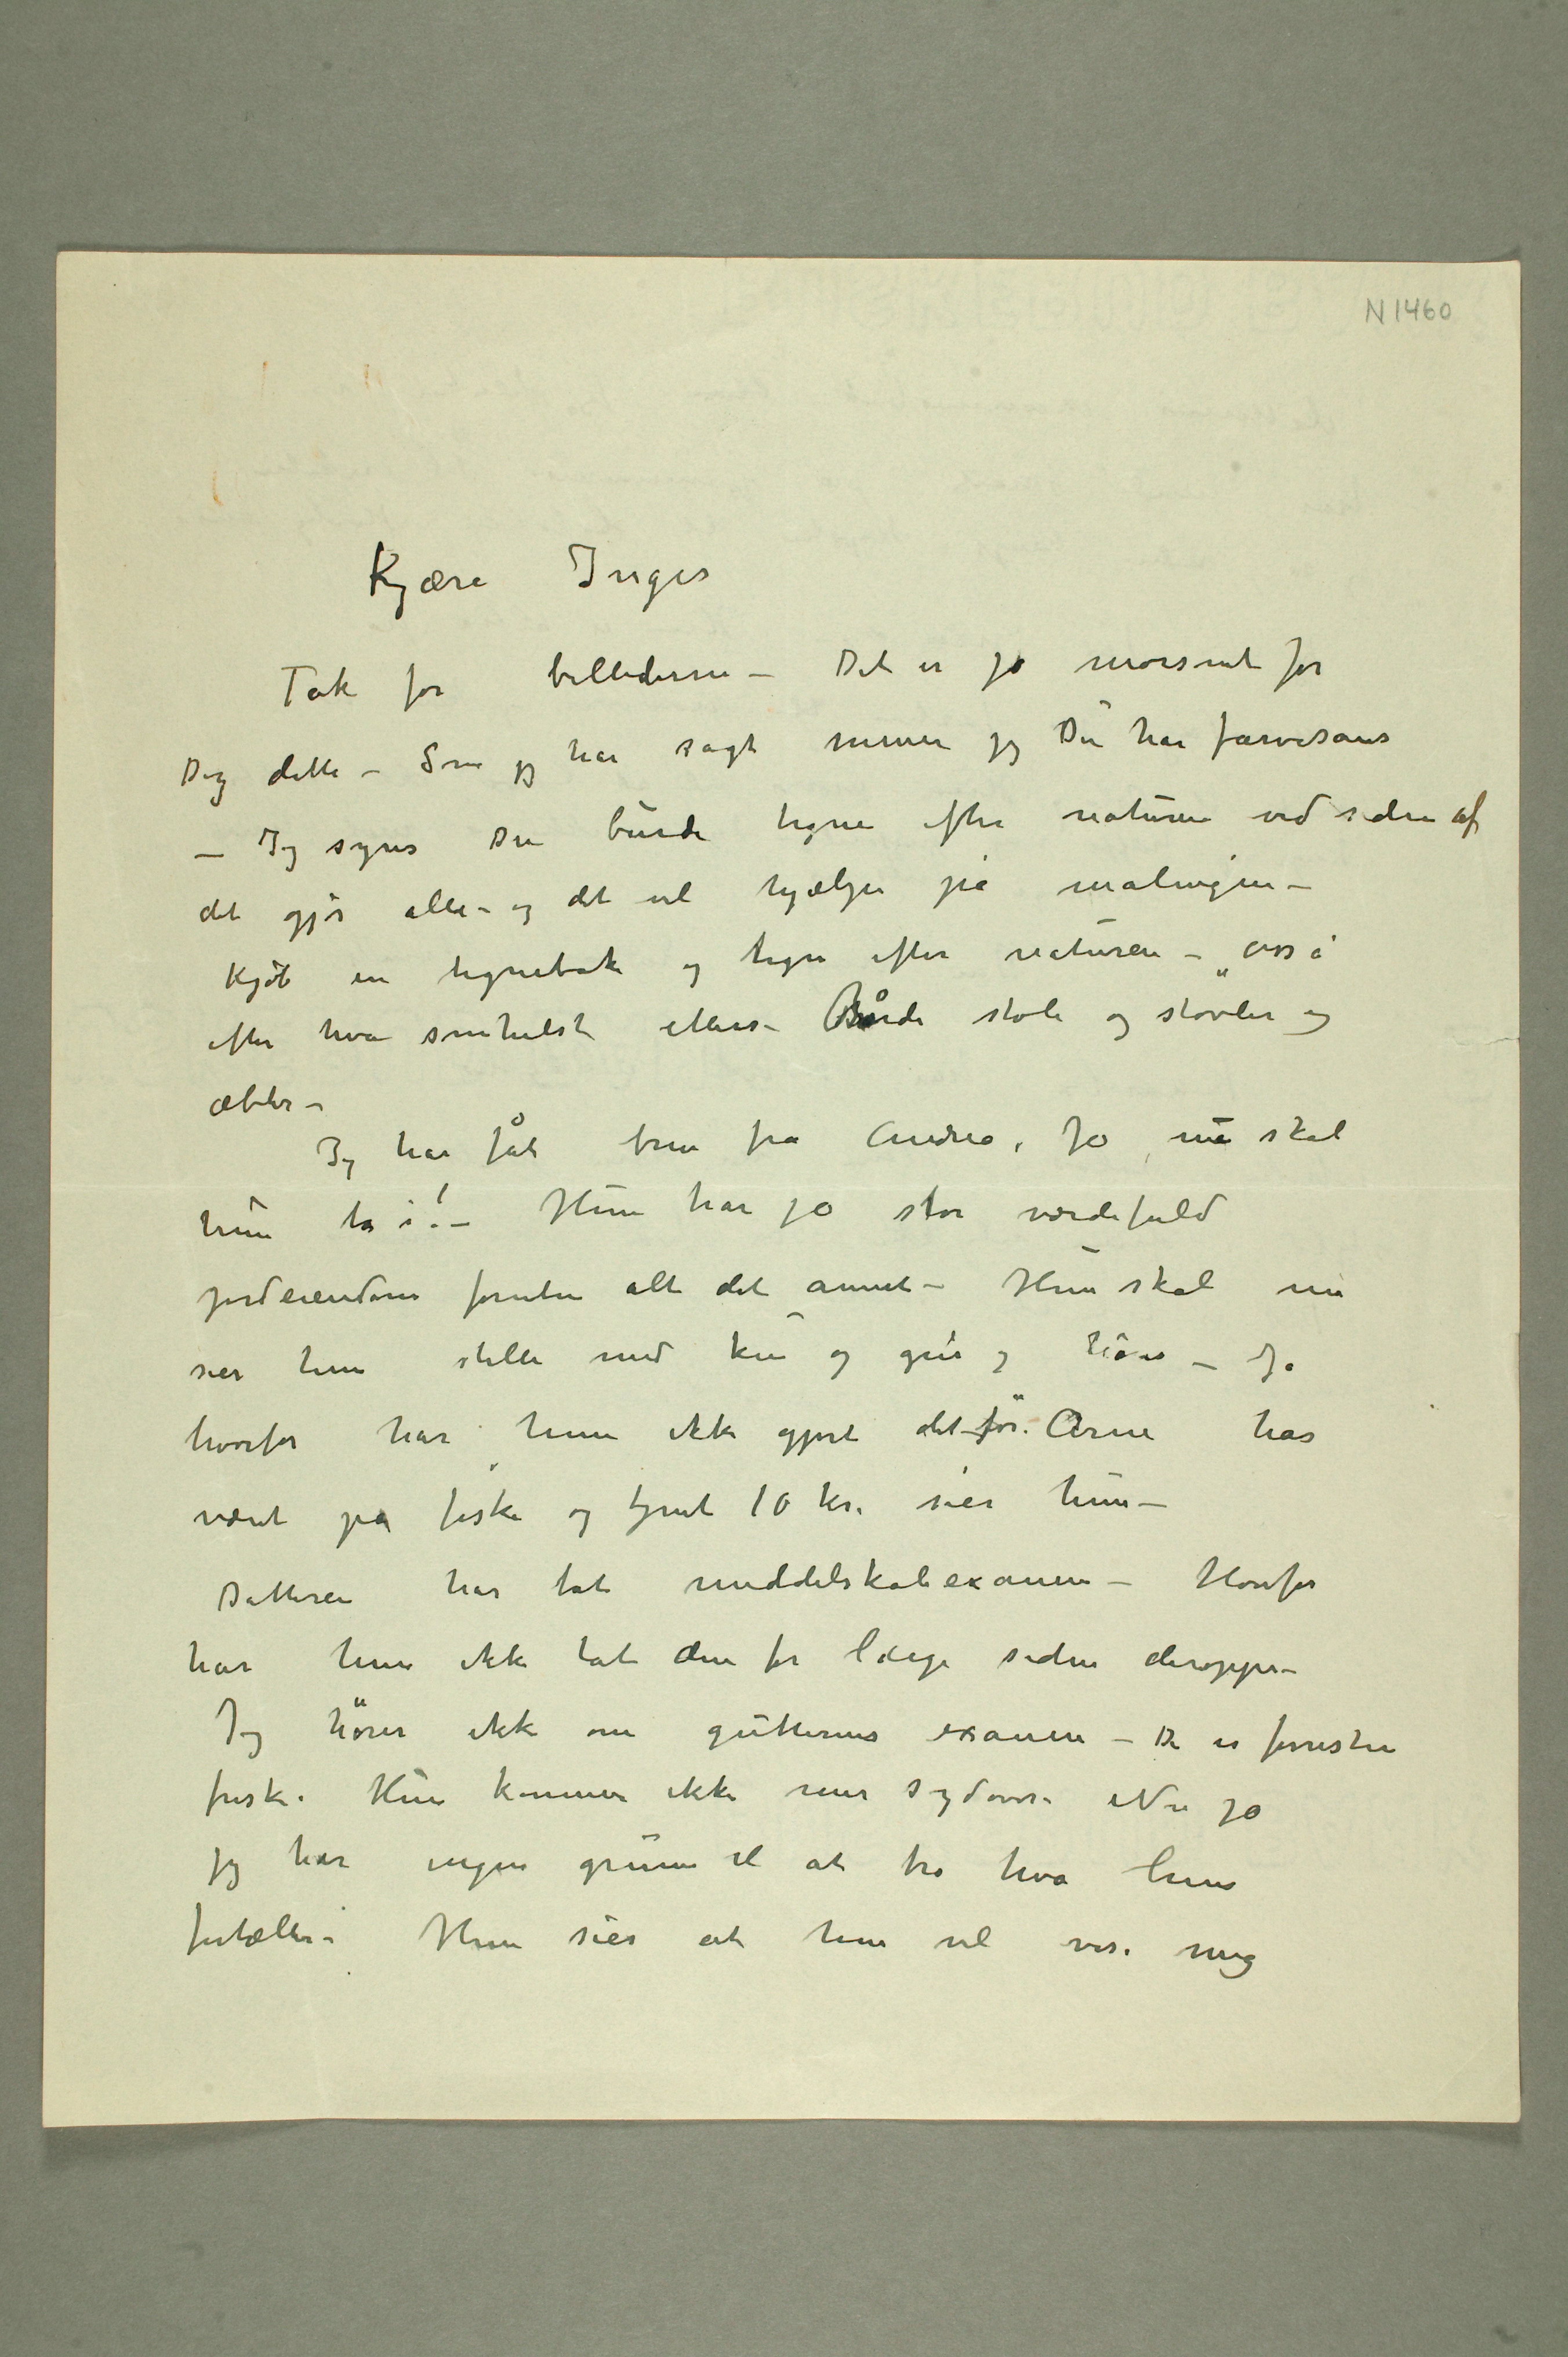 N 1460
Kjære Inger
Tak for billederne – Det er jo morsomt for
Dig dette – Som jeg har sagt mener jeg Du har farvesans
– Jeg synes Du burde tegne efter naturen ved siden af
det gjør alle – og det vil hjælpe på malingen –
Kjøb en tegnebok og tegn efter naturen – også
efter hva somhelst ellers – Både stole og støvler og
æbler –
Jeg har fåt brev fra Andrea. Ja nu skal
hun ta i! – Hun har jo stor værdifuld
jordeiendom foruten alt det annet – Hun skal nu
sier hun stelle med ku og gris og høns – Ja
hvorfor har hun ikke gjort det før. Arne har
været på fiske og tjent 10 kr. sier hun –
Datteren har tat middelskoleexamen – Hvorfor
har hun ikke tat den for længe siden deroppe –
Jeg hører ikke om gutternes examen – De er forresten
friske. Hun kommer ikke mer sydover. Nu ja
jeg har ingen grunn til at tro hva hun
fortæller – Hun sier at hun vil vise mig